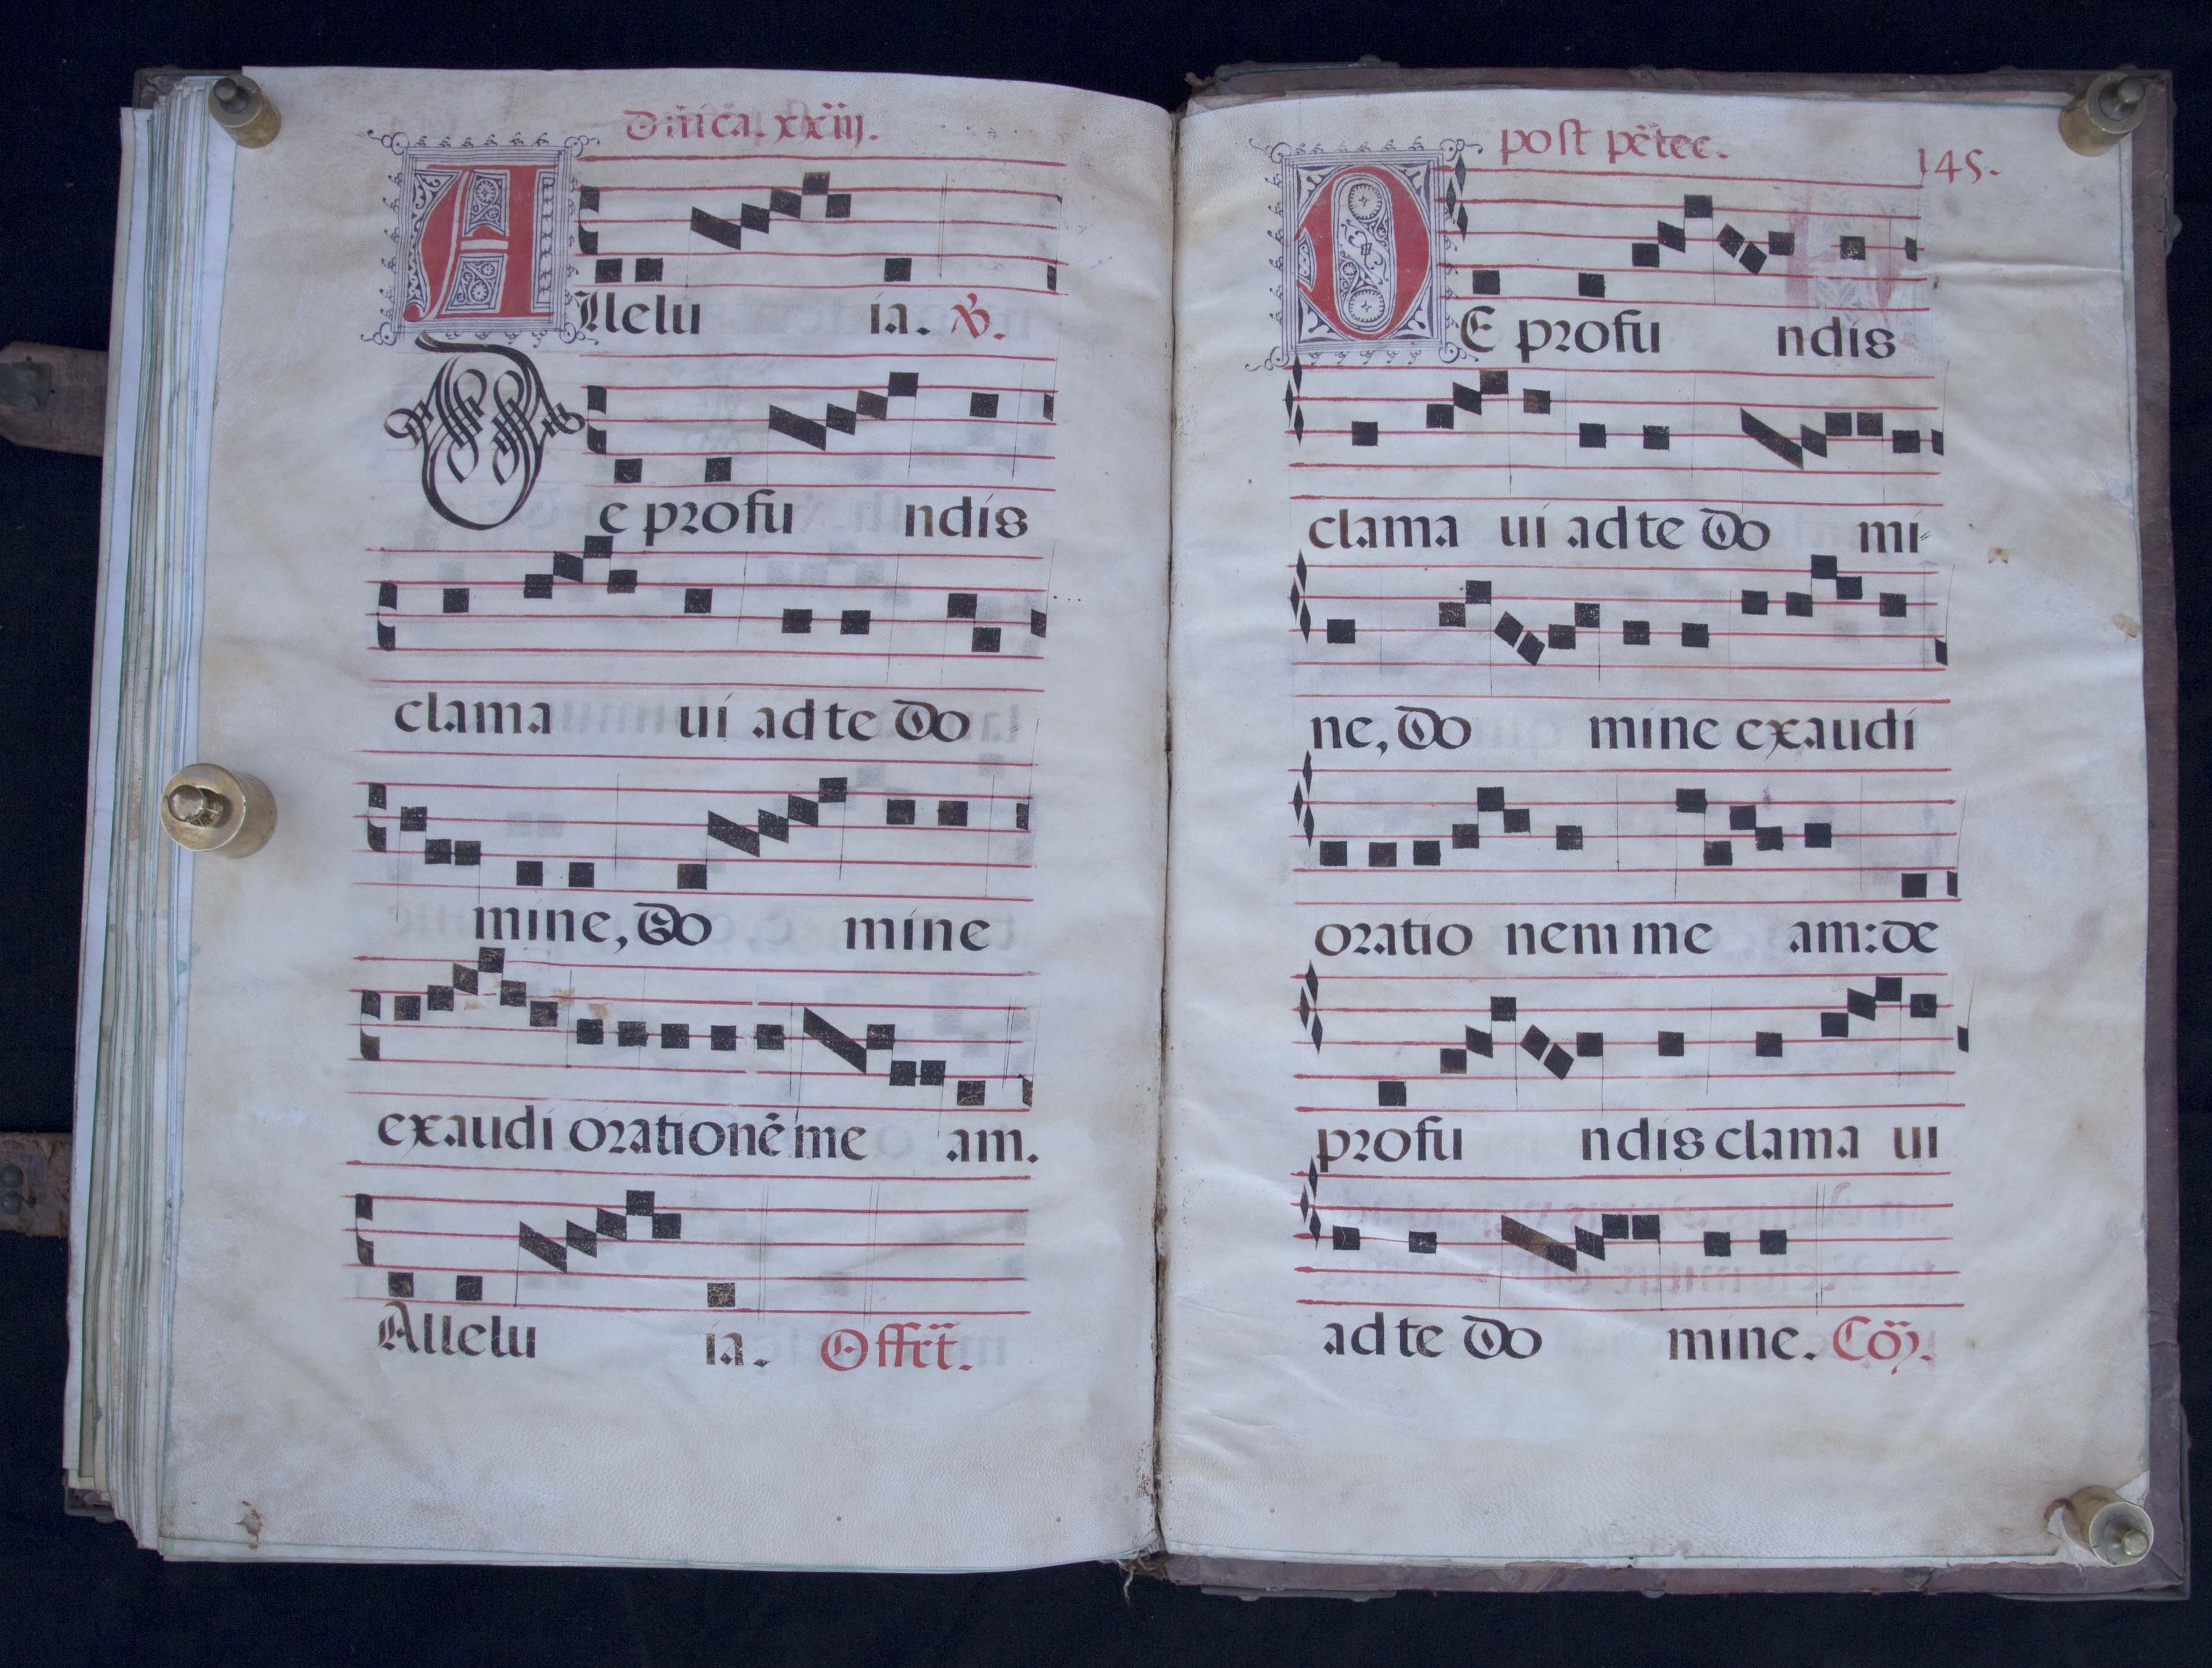 Dñica. xxiij.
Allelu ia. ℣.
De profu ndis
clama ui ad te Do
mine, Do mine
exaudi orationē me am.
Allelu ia. Offrt̃.
post pētec. 145.
DE profu ndis
clama ui ad te Do mi-
ne, Do mine exaudi
oratio nem me am: de
profu ndis clama ui
ad te Do mine. Cõ.